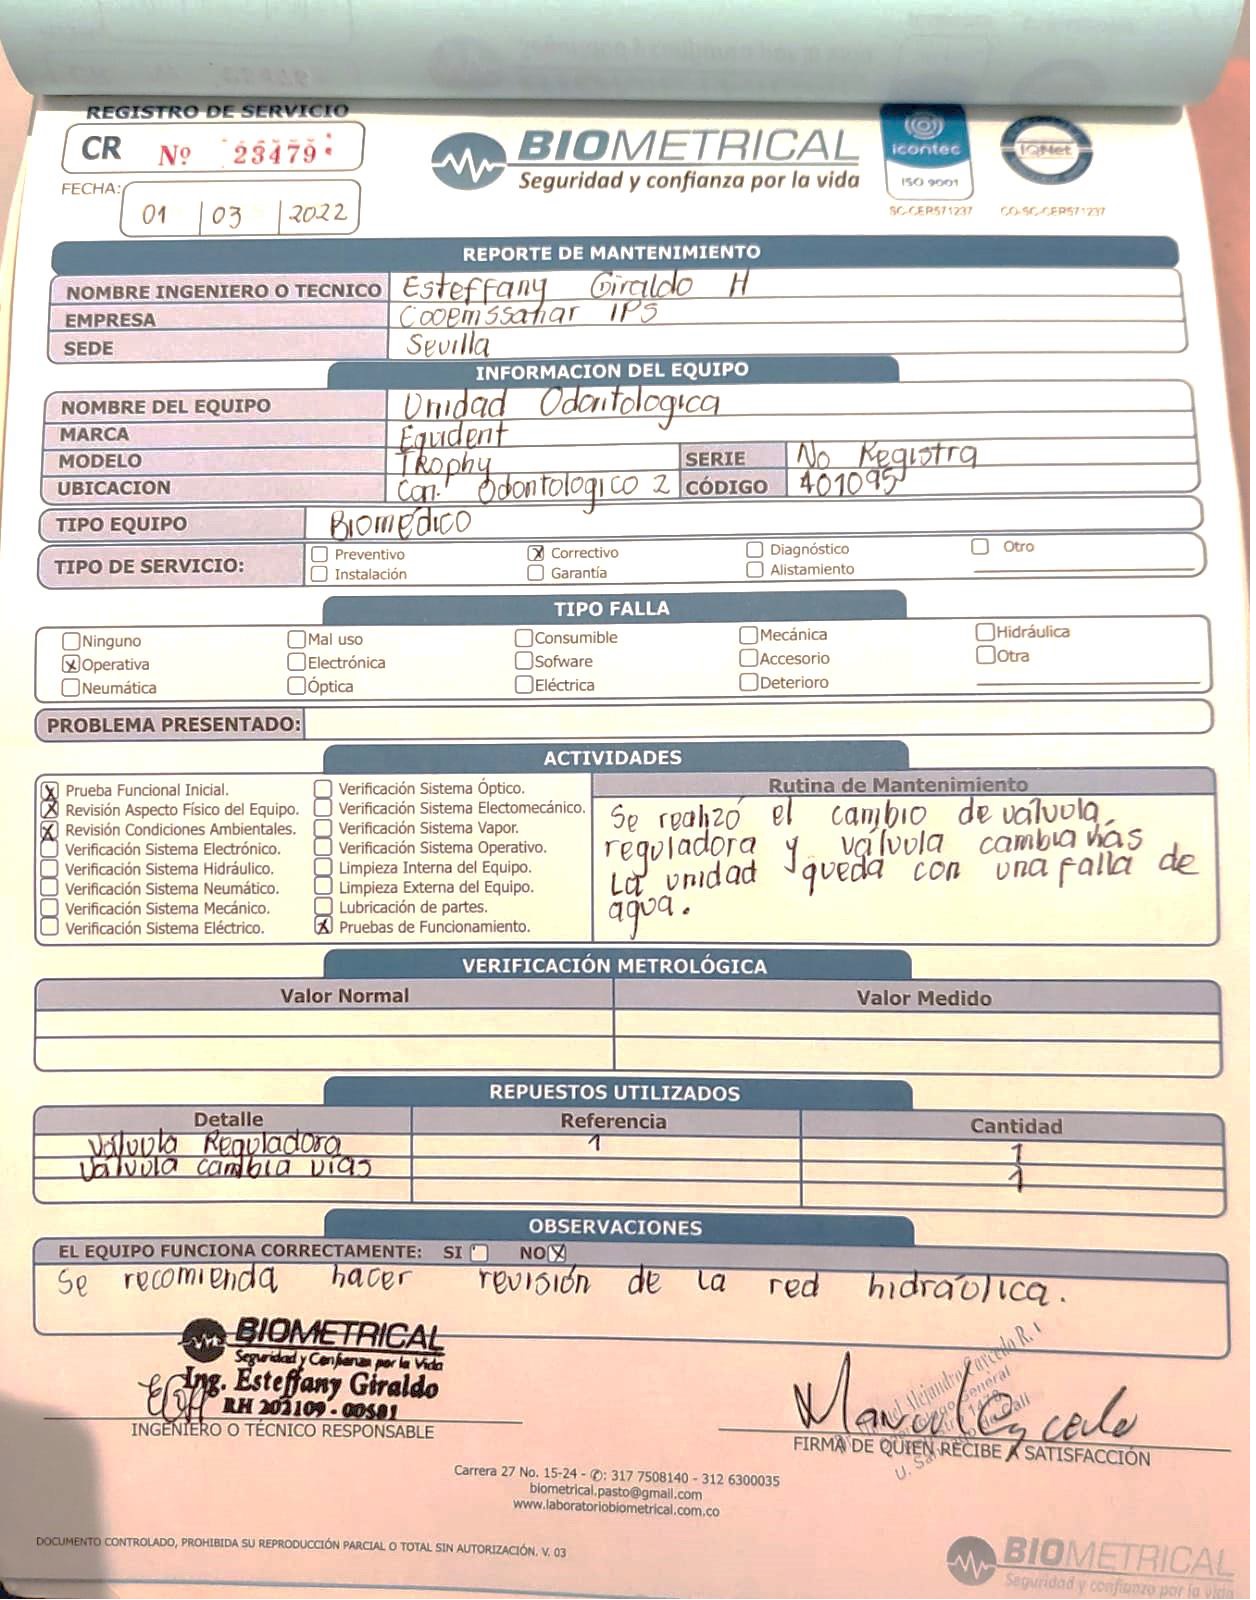 REGISTRO DE SERVICIO
CR Nº 23479
FECHA: 01 03 2022
BIOMETRICAL
Seguridad y confianza por la vida
icontec
ISO 9001
SC-CER571237
IQNet
CO-SC-CER571237
REPORTE DE MANTENIMIENTO
NOMBRE INGENIERO O TECNICO Esteffany Giraldo H
EMPRESA Cooemssanar IPS
SEDE Sevilla
INFORMACION DEL EQUIPO
NOMBRE DEL EQUIPO Unidad Odontologica
MARCA Equident
MODELO Trophy SERIE No Registra
UBICACION Con. Odontologico 2 CÓDIGO 401095
TIPO EQUIPO Biomédico
TIPO DE SERVICIO: Preventivo X Correctivo Diagnóstico Otro
Instalación Garantía Alistamiento
TIPO FALLA
Ninguno Mal uso Consumible Mecánica Hidráulica
X Operativa Electrónica Sofware Accesorio Otra
Neumática Óptica Eléctrica Deterioro
PROBLEMA PRESENTADO:
ACTIVIDADES
X Prueba Funcional Inicial.
X Revisión Aspecto Físico del Equipo.
X Revisión Condiciones Ambientales.
Verificación Sistema Electrónico.
Verificación Sistema Hidráulico.
Verificación Sistema Neumático.
Verificación Sistema Mecánico.
Verificación Sistema Eléctrico.
Verificación Sistema Óptico.
Verificación Sistema Electomecánico.
Verificación Sistema Vapor.
Verificación Sistema Operativo.
Limpieza Interna del Equipo.
Limpieza Externa del Equipo.
Lubricación de partes.
X Pruebas de Funcionamiento.
Rutina de Mantenimiento
Se realizó el cambio de válvula
reguladora y válvula cambia vías
La unidad queda con una falla de
agua.
VERIFICACIÓN METROLÓGICA
Valor Normal Valor Medido
REPUESTOS UTILIZADOS
Detalle Referencia Cantidad
Válvula Reguladora 1 1
Válvula cambia vías 1
OBSERVACIONES
EL EQUIPO FUNCIONA CORRECTAMENTE: SI NO X
Se recomienda hacer revisión de la red hidráulica.
BIOMETRICAL
Seguridad y Confianza por la Vida
Ing. Esteffany Giraldo
RH 202109 - 00581
INGENIERO O TÉCNICO RESPONSABLE
Alejandro Caicedo R.
General
Manuel Caicedo
FIRMA DE QUIEN RECIBE A SATISFACCIÓN
Carrera 27 No. 15-24 - ✆: 317 7508140 - 312 6300035
biometrical.pasto@gmail.com
www.laboratoriobiometrical.com.co
DOCUMENTO CONTROLADO, PROHIBIDA SU REPRODUCCIÓN PARCIAL O TOTAL SIN AUTORIZACIÓN. V. 03
BIOMETRICAL
Seguridad y confianza por la vida